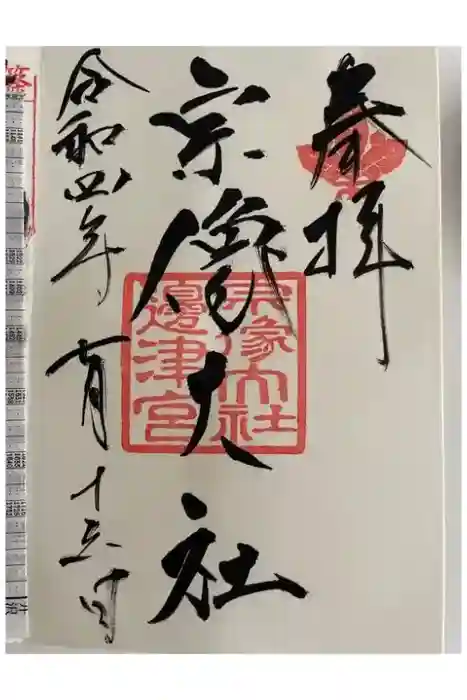 奉拝
宗像大社
宗像大社
邊津宮
令和四年七月十五日